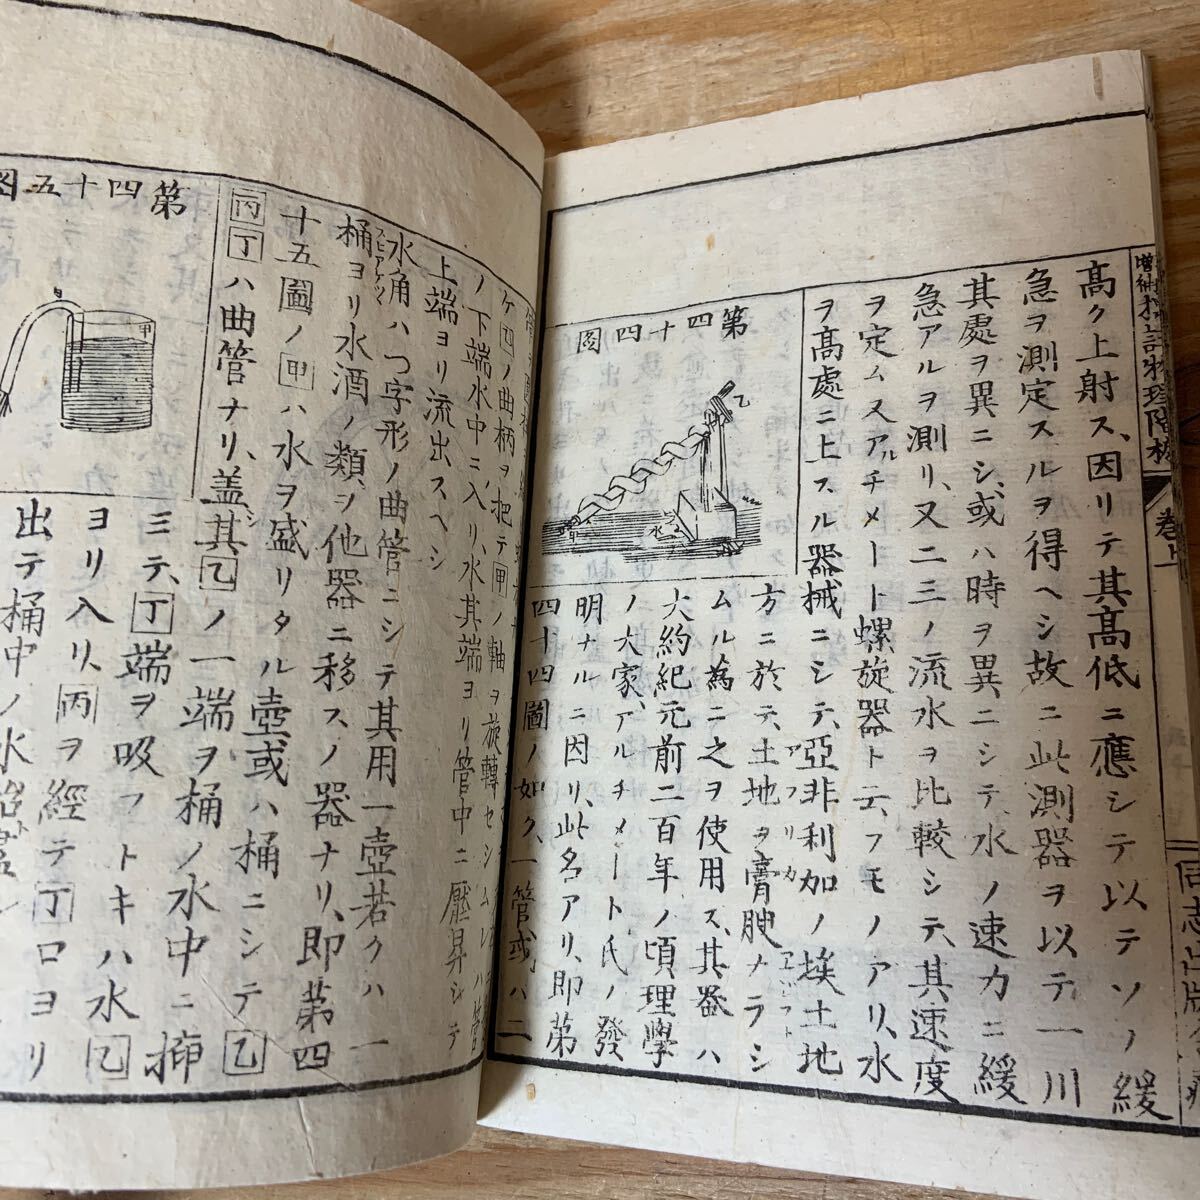 高ク上射ス、因リテ其高低ニ應シテ以テソノ緩
急ヲ測定スルヲ得ヘシ故ニ此測器ヲ以テ一川
其處ヲ異ニシ、或ハ時ヲ異ニシテ、水ノ速力ニ緩
急アルヲ測リ、又二三ノ流水ヲ比較シテ、其速度
ヲ定ムスアルチメート螺旋器ト云フモノアリ、水
ヲ髙處ニ上スル器械ニシテ、亞非利加ノ埃土地
方ニ於テ、土地ヲ膏腴ナラシ
ムル為ニ之ヲ使用ス、其器ハ
大約紀元前二百年ノ頃理學
ノ大家、アルチメート氏ノ發
明ナルニ因リ、此名アリ、即第
四十四圖ノ如ク、一管或ハ二
第四十四圖
甲
乙
水
巻上
ケ四ノ曲柄ヲ把テ甲ノ軸ヲ旋轉セシムレハ管
ノ下端水中ニ入リ、水其端ヨリ管中ニ壓昇シテ
上端ヨリ流出スヘシ
水角ハつ字形ノ曲管ニシテ其用一壺若クハ一
桶ヨリ水酒ノ類ヲ他器ニ移スノ器ナリ、即第四
十五圖ノ甲ハ水ヲ盛リタル壺或ハ桶ニシテ乙
丙丁ハ曲管ナリ、盖シ其乙ノ一端ヲ桶ノ水中ニ挿
ミテ、丁端ヲ吸フトキハ水乙
ヨリ入リ、丙ヲ經テ丁口ヨリ
出テ桶中ノ水
第四十五圖
甲